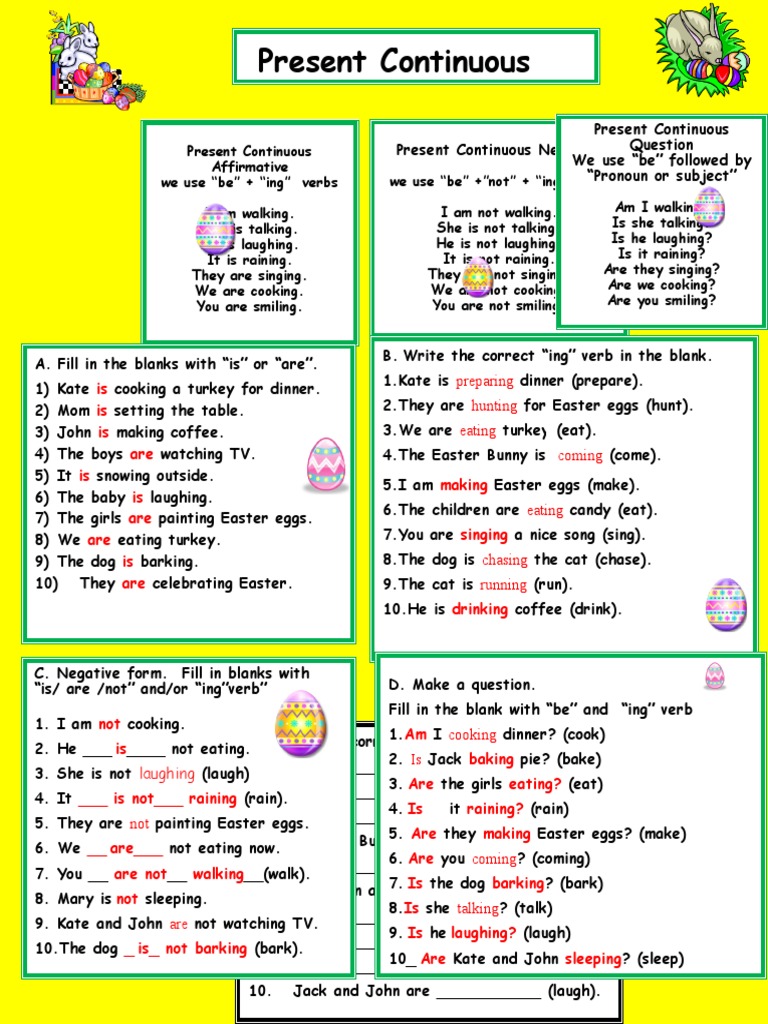 Present Continuous
Present Continuous
Affirmative
we use “be” + “ing” verbs
walking.
is talking.
laughing.
It is raining.
They are singing.
We are cooking.
You are smiling.
Present Continuous Ne
we use “be” +”not” + “in
I am not walking.
She is not talking
He is not laughing
It is not raining.
They not singin
We a not cookin
You are not smilin
Present Continuous
Question
We use “be” followed by
“Pronoun or subject”
Am I walkin
Is she talking
Is he laughing?
Is it raining?
Are they singing?
Are we cooking?
Are you smiling?
A. Fill in the blanks with “is” or “are”.
1) Kate is cooking a turkey for dinner.
2) Mom is setting the table.
3) John is making coffee.
4) The boys are watching TV.
5) It is snowing outside.
6) The baby is laughing.
7) The girls are painting Easter eggs.
8) We are eating turkey.
9) The dog is barking.
10) They are celebrating Easter.
B. Write the correct “ing” verb in the blank.
1.Kate is preparing dinner (prepare).
2.They are hunting for Easter eggs (hunt).
3.We are eating turkey (eat).
4.The Easter Bunny is coming (come).
5.I am making Easter eggs (make).
6.The children are eating candy (eat).
7.You are singing a nice song (sing).
8.The dog is chasing the cat (chase).
9.The cat is running (run).
10.He is drinking coffee (drink).
C. Negative form. Fill in blanks with
“is/ are /not” and/or “ing”verb”
1. I am not cooking.
2. He ___ is____ not eating.
3. She is not laughing (laugh)
4. It ___ is not___ raining (rain).
5. They are not painting Easter eggs.
6. We __ are___ not eating now.
7. You __ are not__ walking__(walk).
8. Mary is not sleeping.
9. Kate and John are not watching TV.
10.The dog _ is_ not barking (bark).
D. Make a question.
Fill in the blank with “be” and “ing” verb
1.Am I cooking dinner? (cook)
2. Is Jack baking pie? (bake)
3. Are the girls eating? (eat)
4. Is it raining? (rain)
5. Are they making Easter eggs? (make)
6. Are you coming? (coming)
7. Is the dog barking? (bark)
8.Is she talking? (talk)
9. Is he laughing? (laugh)
10_ Are Kate and John sleeping? (sleep)
10. Jack and John are ____________ (laugh).